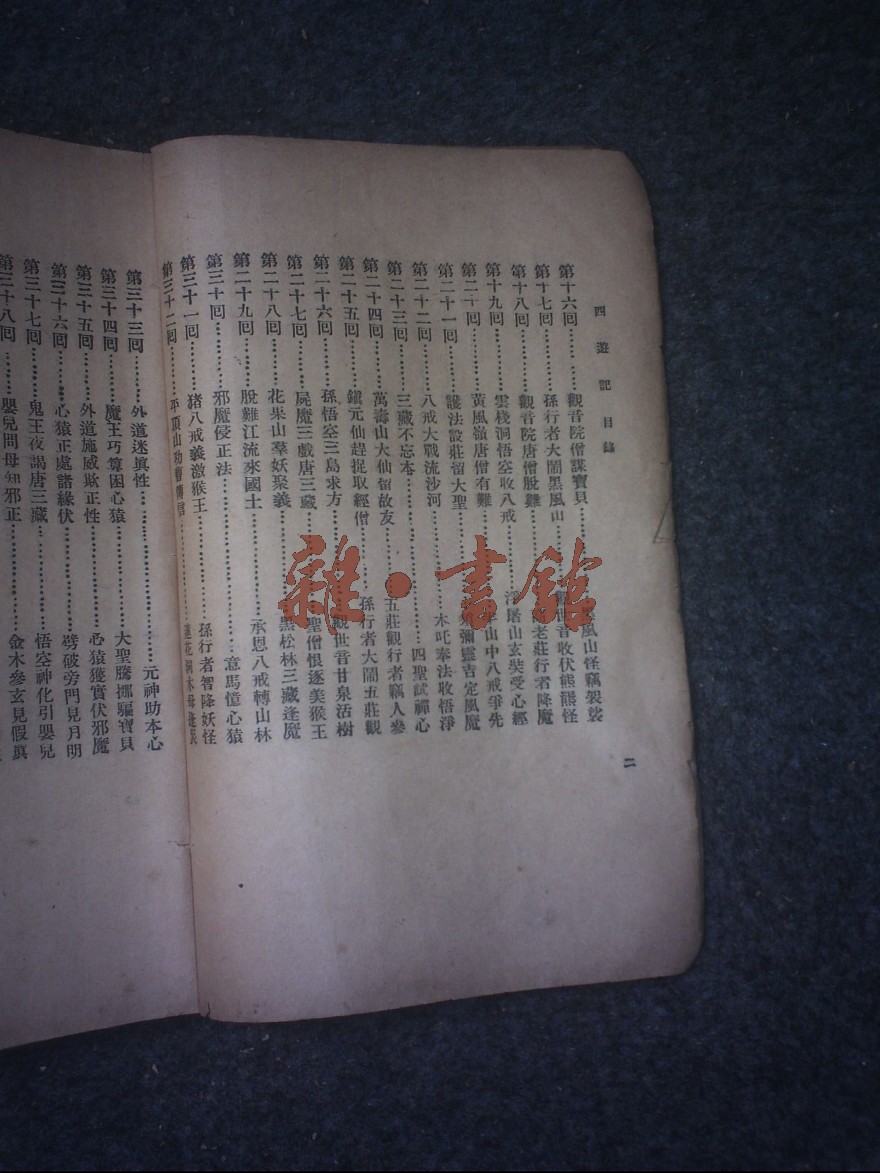 西遊記 目錄
第十六回 觀音院僧謀寶貝 風山怪竊袈裟
第十七回 孫行者大鬧黑風山 世音收伏熊羆怪
第十八回 觀音院唐僧脫難 老莊行者降魔
第十九回 雲棧洞悟空收八戒 浮屠山玄奘受心經
第二十回 黃風嶺唐僧有難 山中八戒爭先
第二十一回 護法設莊留大聖 彌靈吉定風魔
第二十二回 八戒大戰流沙河 木吒奉法收悟淨
第二十三回 三藏不忘本 四聖試禪心
第二十四回 萬壽山大仙留故友 五莊觀行者竊人參
第二十五回 鎮元仙趕捉取經僧 孫行者大鬧五莊觀
第二十六回 孫悟空三島求方 觀世音甘泉活樹
第二十七回 屍魔三戲唐三藏 聖僧恨逐美猴王
第二十八回 花果山羣妖聚義 黑松林三藏逢魔
第二十九回 脫難江流來國土 承恩八戒轉山林
第三十回 邪魔侵正法 意馬憶心猿
第三十一回 猪八戒義激猴王 孫行者智降妖怪
第三十二回 平頂山功曹傳信 蓮花洞木母逢災
二
第三十三回 外道迷真性 元神助本心
第三十四回 魔王巧算困心猿 大聖騰挪驅寶貝
第三十五回 外道施威欺正性 心猿獲寶伏邪魔
第三十六回 心猿正處諸緣伏 劈破旁門見月明
第三十七回 鬼王夜謁唐三藏 悟空神化引嬰兒
第三十八回 嬰兒問母知邪正 金木參玄見假真
雜·書館